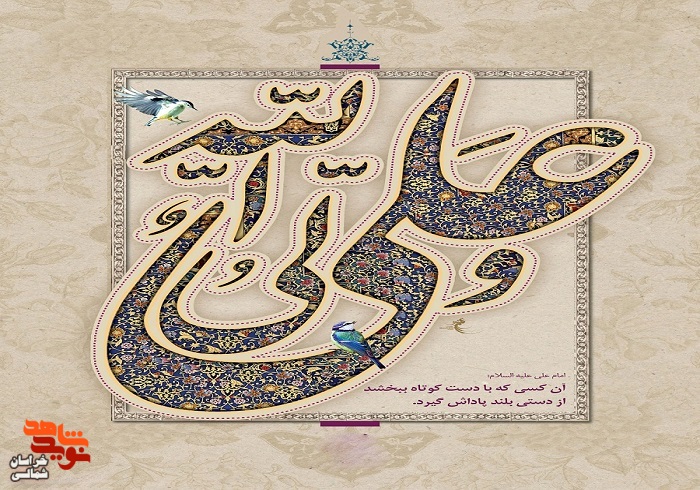 علی ولی الله
امام علی علیه السلام:
آن کسی که با دست کوتاه ببخشد
از دستی بلند پاداش گیرد.
نوید شاهد
خراسان
شمالی